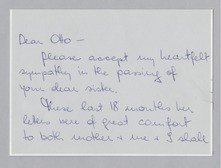 Dear Otto —
Please accept my heartfelt
sympathy in the passing of
your dear sister.
These last 18 months her
letters were of great comfort
to both mother & me & I shall